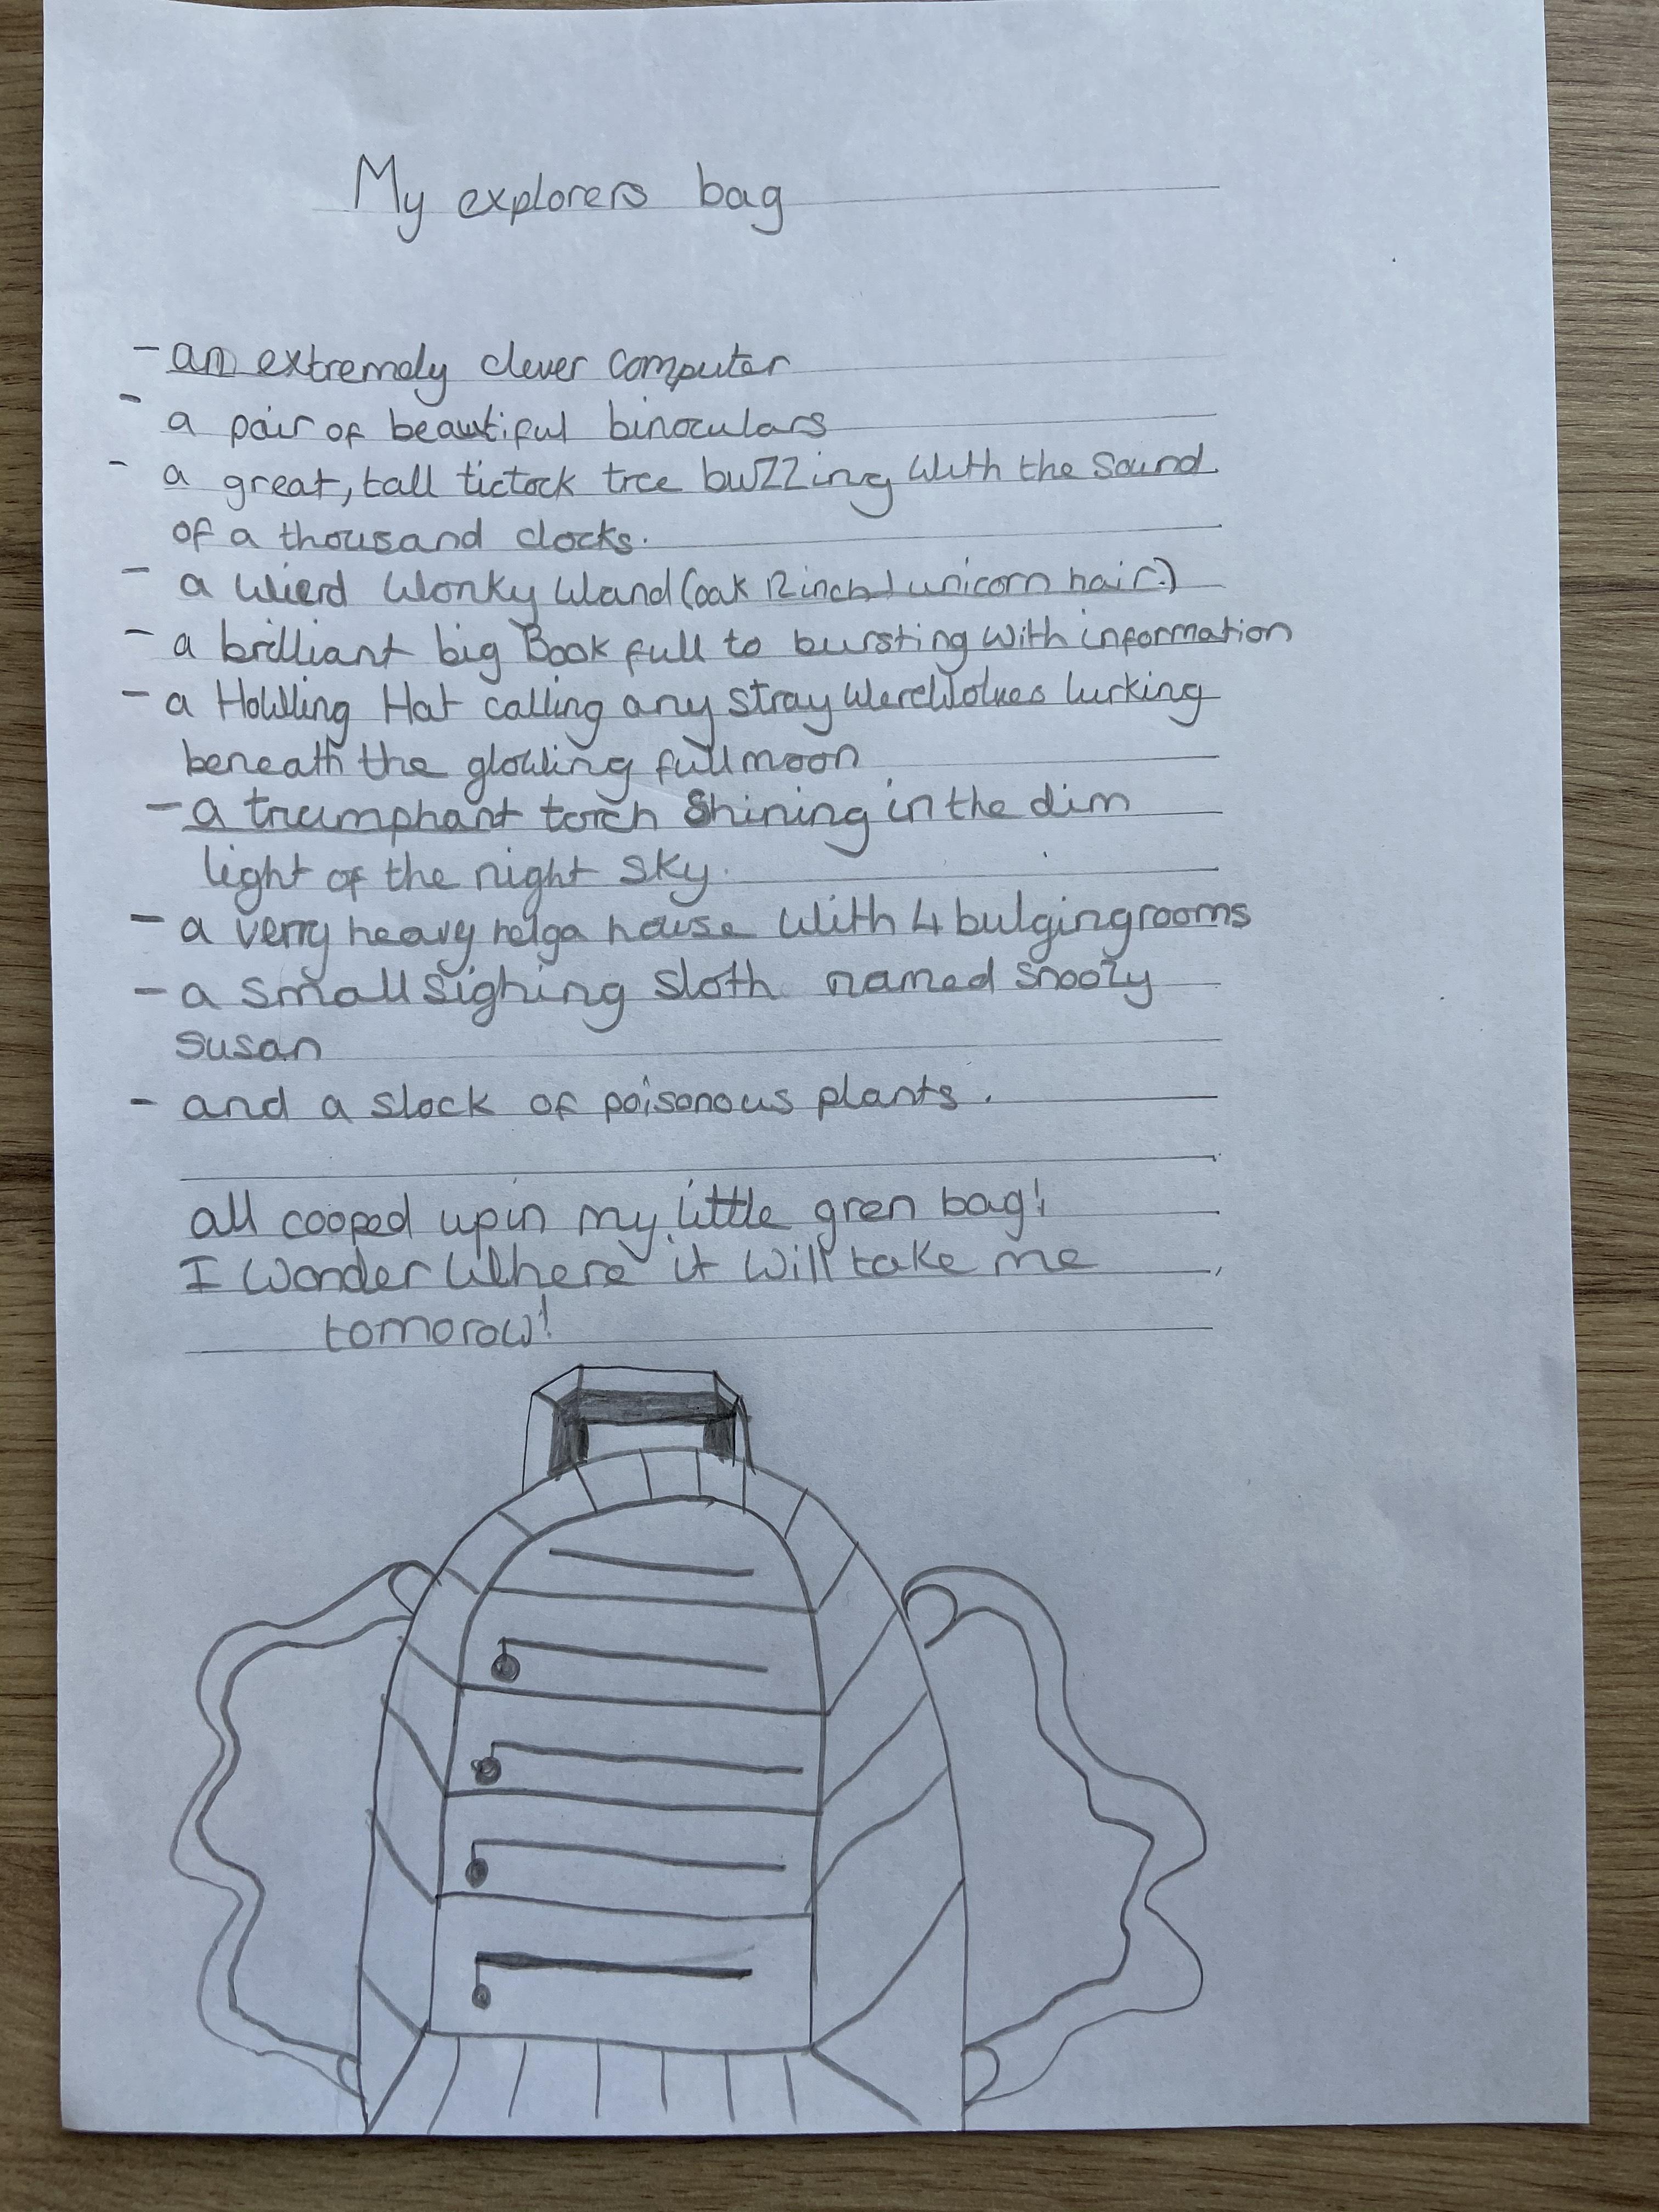 My explorers bag
- an extremely clever computer
- a pair of beautiful binoculars
- a great, tall tictock tree buzzing with the sound
of a thousand clocks.
- a wierd wonky wand (oak 12 inch unicorn hair.)
- a brilliant big Book full to bursting with information
- a Howling Hat calling any stray werewolves lurking
beneath the glowing full moon
- a trumphant torch shining in the dim
light of the night sky.
- a verry heavy house with 4 bulging rooms
- a small sighing sloth named snoozy
susan
- and a slock of poisonous plants.
all cooped up in my little gren bag!
I wonder where it will take me
tomorow!